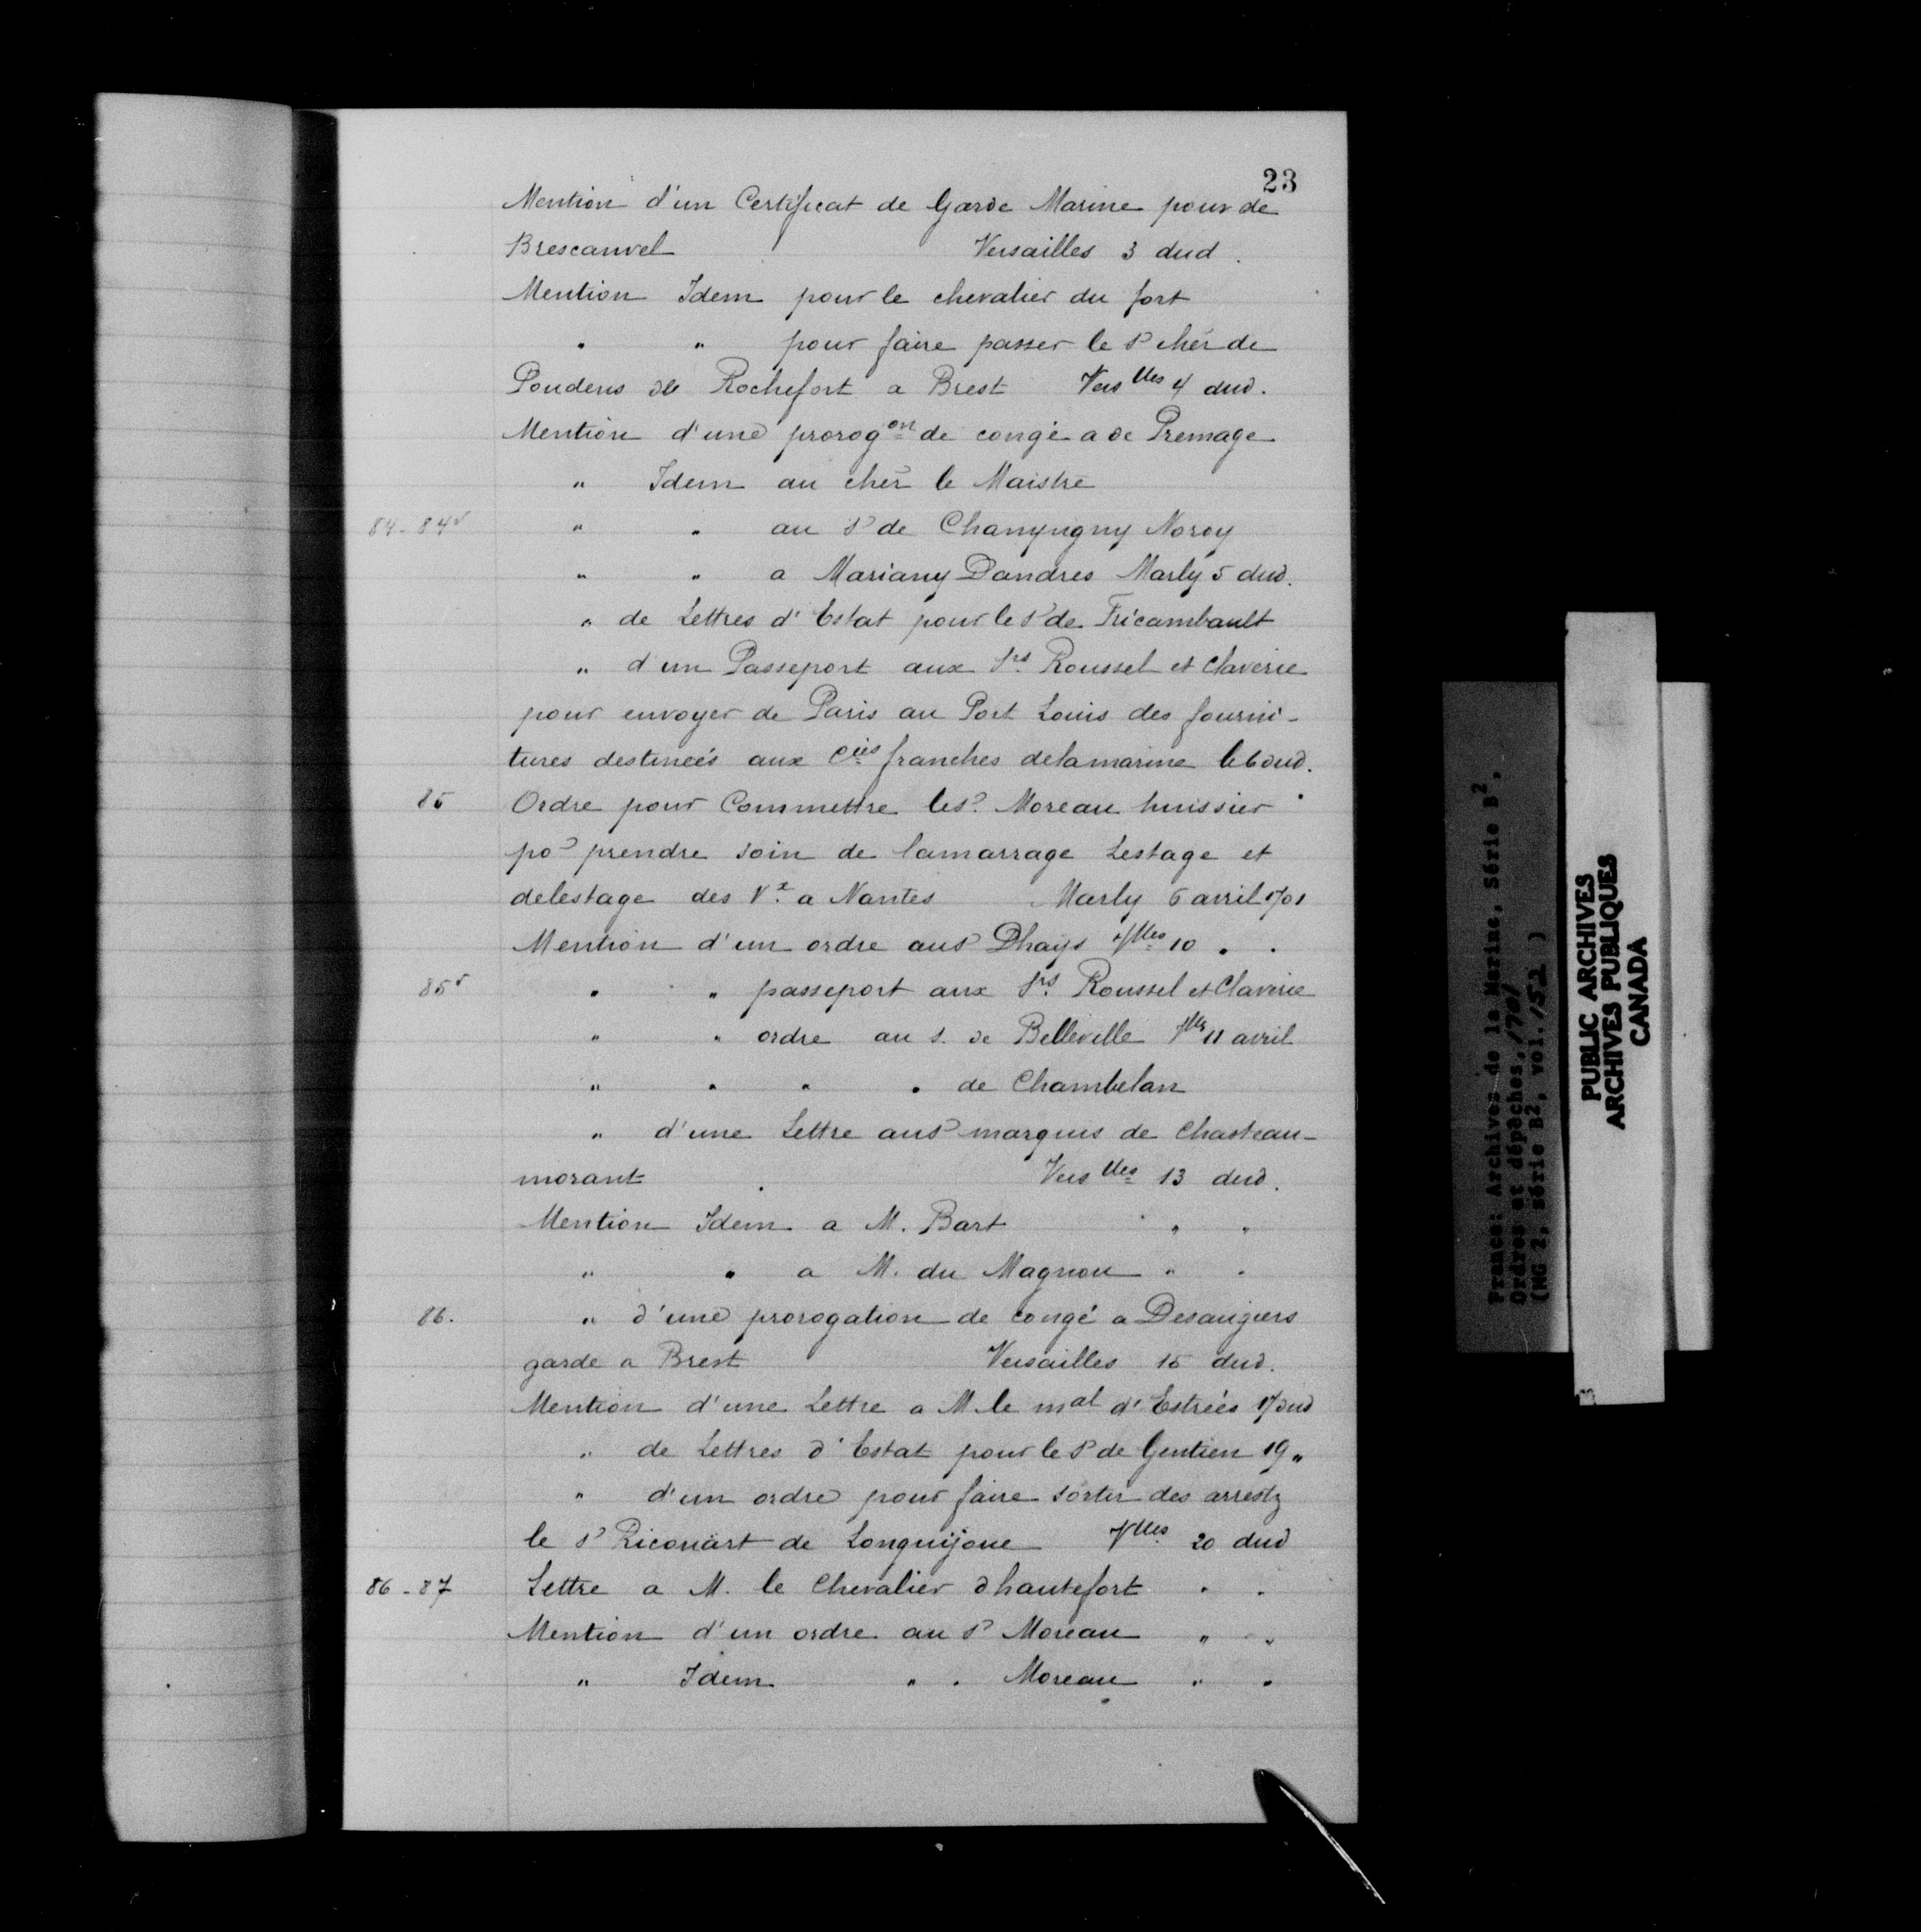 23
Mention d'un Certificat de Garde Marine pour de
Brescanvel Versailles 3 dud.
Mention Idem pour le chevalier du fort
" " pour faire passer le Sr cher de
Poudens de Rochefort a Brest Vers lles 4 dud.
Mention d'une prorogon de congé a de Premage
" Idem au cher le Maistre
84-84v " " au Sr de Champigny Noroy
" " a Mariany Dandres Marly 5 dud.
" de Lettres d'Estat pour le Sr de Tricambault
" d'un Passeport aux Srs Roussel et Claverie
pour envoyer de Paris au Port Louis des fourni-
tures destineés aux Cies franches de la marine le 6 dud.
85 Ordre pour Commettre le Sr Moreau huissier
por prendre soin de lamarrage Lestage et
delestage des Vx a Nantes Marly 6 avril 1701
Mention d'un ordre au Sr Dhays Vlles 10 " "
85v " " passeport aux Srs Roussel et Claverie
" " ordre au s. de Belleville Vlles 11 avril
" " " " de Chambelan
" d'une Lettre au Sr marquis de Chasteau-
morant Vers lles 13 dud.
Mention Idem a M. Bart " "
" " a M. du Magnou " "
86. " d'une prorogation de congé a Desaugiers
garde a Brest Versailles 15 dud.
Mention d'une Lettre a M. le mal d'Estrées 17 dud
" de Lettres d'Estat pour le Sr de Gentien 19 "
" d'un ordre pour faire sortir des arrestz
le Sr Ricouart de Longuijoue Vlles 20 dud
86-87 Lettre a M. le Chevalier dhautefort " "
Mention d'un ordre au Sr Moreau " "
" Idem " " Moreau " "
France: Archives de la Marine, Série B2,
Ordres et dépêches, 1701
(MG 2, série B2, vol. 152)
PUBLIC ARCHIVES
ARCHIVES PUBLIQUES
CANADA